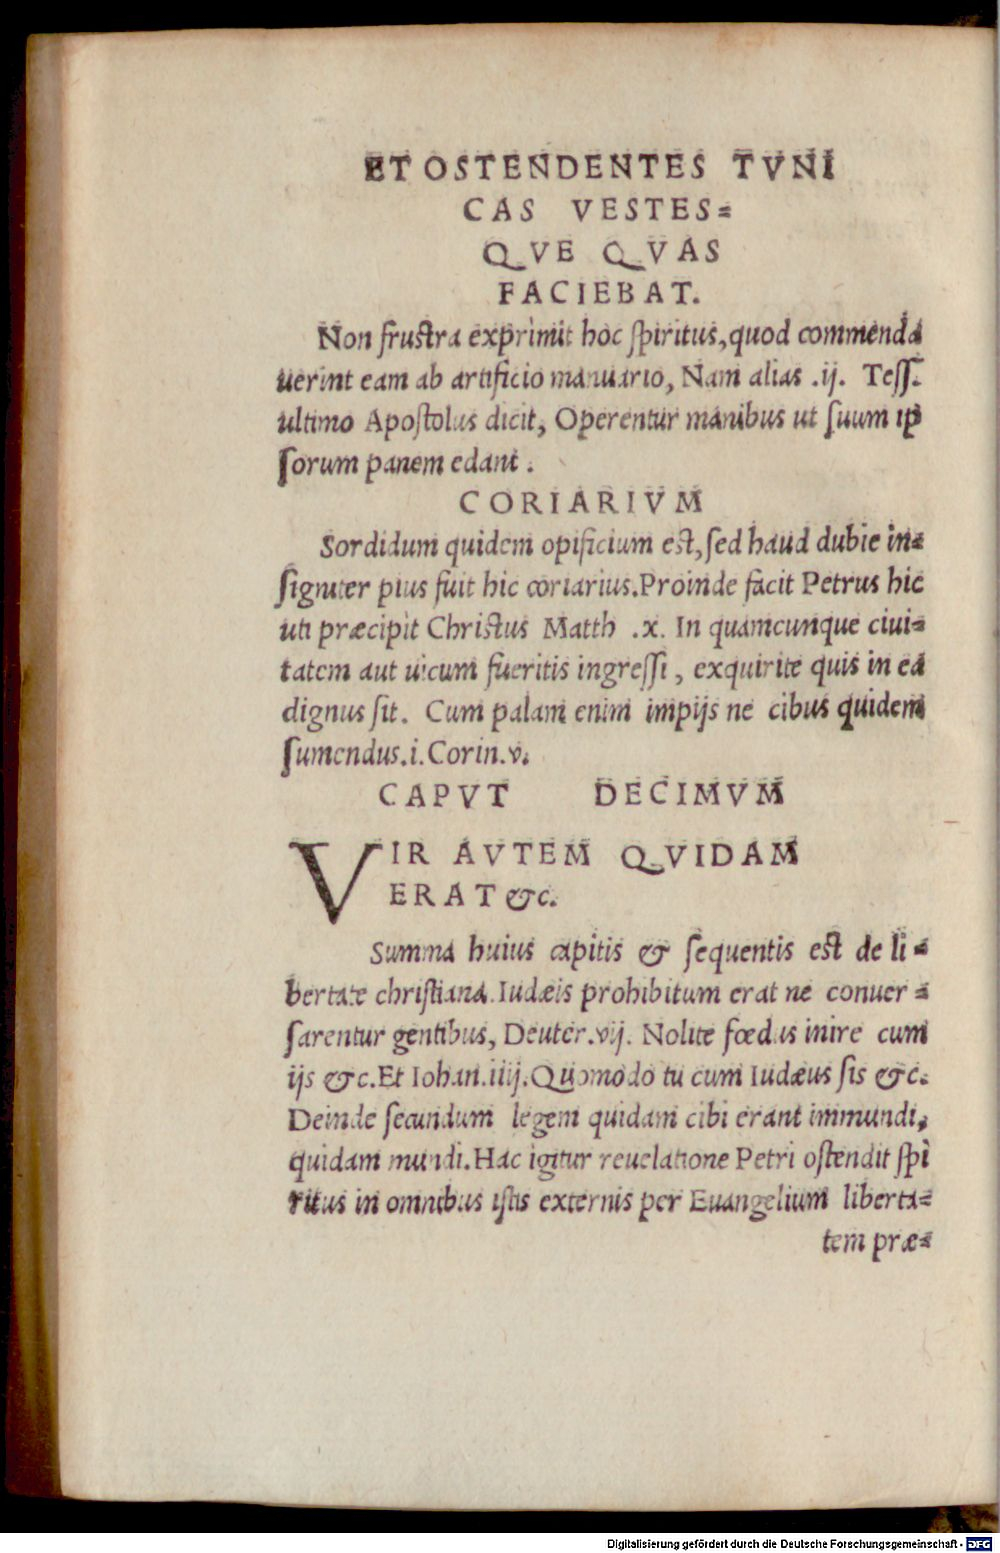 ET OSTENDENTES TVNI
CAS VESTES=
QVE QVAS
FACIEBAT.
Non frustra exprimit hoc spiritus, quod commenda
uerint eam ab artificio manuario, Nam alias .ij. Tess.
ultimo Apostolus dicit, Operentur manibus ut suum ip
sorum panem edant.
CORIARIVM
Sordidum quidem opificium est, sed haud dubie in=
signiter pius fuit hic coriarius. Proinde facit Petrus hic
uti præcipit Christus Matth .x. In quamcunque ciui=
tatem aut uicum fueritis ingressi, exquirite quis in ea
dignus sit. Cum palam enim impijs ne cibus quidem
sumendus. i. Corin. v.
CAPVT DECIMVM
VIR AVTEM QVIDAM
ERAT &c.
Summa huius capitis & sequentis est de li=
bertate christiana. Iudæis prohibitum erat ne conuer=
sarentur gentibus, Deuter. vij. Nolite fœdus inire cum
ijs &c. Et Iohan. iiij. Quomodo tu cum Iudæus sis &c.
Deinde secundum legem quidam cibi erant immundi,
quidam mundi. Hac igitur reuelatione Petri ostendit spi
ritus in omnibus istis externis per Euangelium liberta=
tem præ=
Digitalisierung gefördert durch die Deutsche Forschungsgemeinschaft - DFG